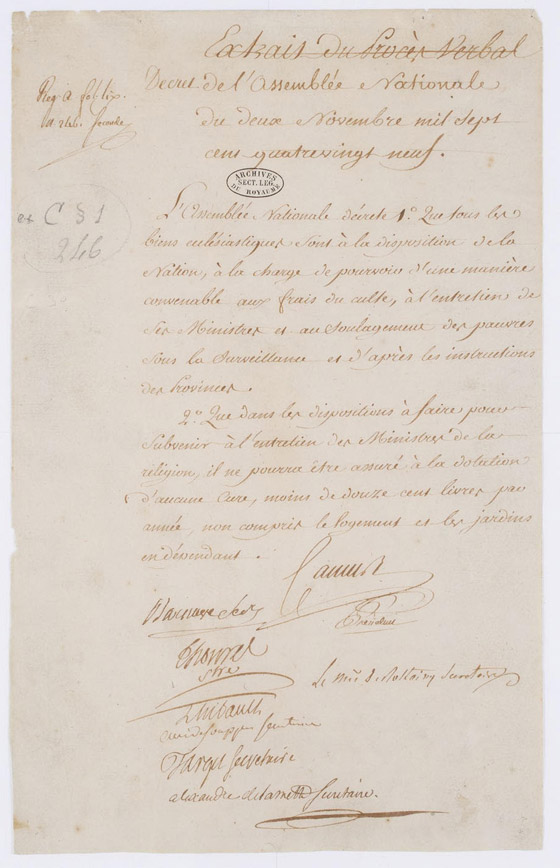 Extrait du Procès Verbal
Decret de l'Assemblée Nationale
du deux Novembre mil Sept
cent quatrevingt neuf.
ARCHIVES
SECT. LEG.
DU ROYAUME
C § 1
246
L'Assemblée Nationale décrete 1.º Que tous les
biens eclésiastiques sont à la disposition de la
Nation, à la charge de pourvoir d'une manière
convenable aux frais du culte, à l'entretien de
Ses Ministres et au Soulagement des pauvres
sous la Surveillance et d'après les instructions
des Provinces.
2.º Que dans les dispositions à faire pour
Subvenir à l'entretien des Ministres de la
réligion, il ne pourra être assuré à la dotation
d'aucune Cure, moins de douze cent livres par
année, non compris le logement et les jardins
en dépendant.
Camus
Président
Barnave
Thouret
Sre
Le Mis de Rostaing Secretaire
Thibault
curé de Souppes Secretaire
Target Secretaire
alexandre de lameth Secretaire.